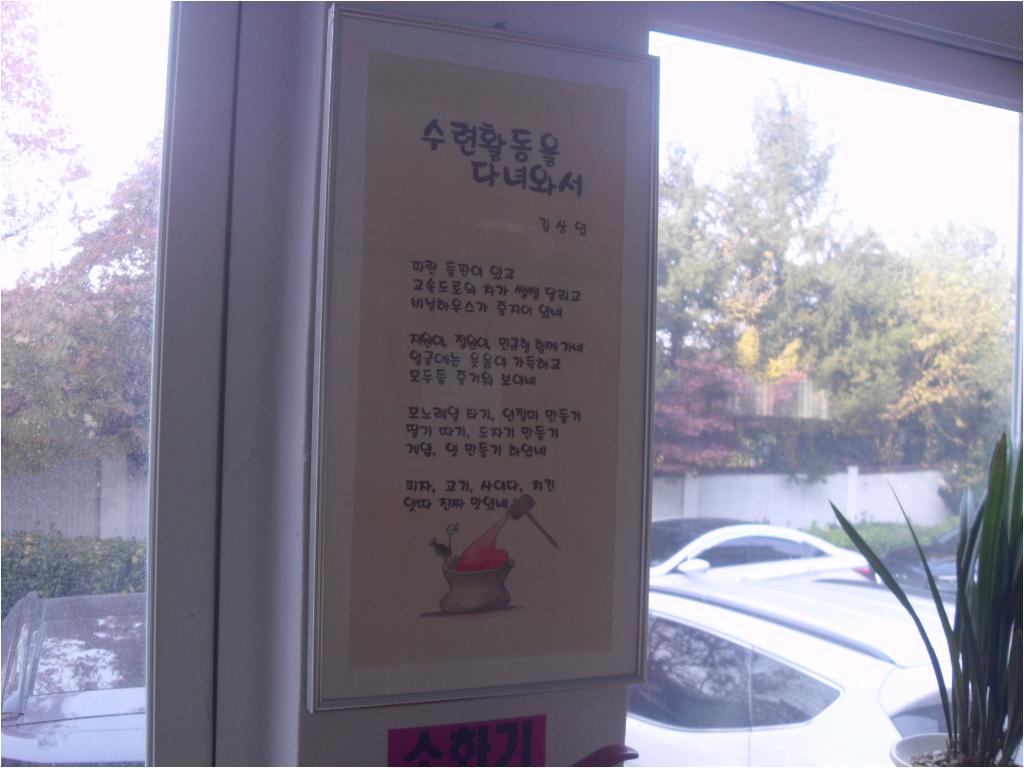 수련활동을
다녀와서
김상덥
파란 들판이 있고
고속도로의 차가 쌩쌩 달리고
비닐하우스가 줄지어 있네
지원이, 정원이, 민규형 함께 가네
얼굴에는 웃음이 가득하고
모두들 즐거워 보이네
모노레일 타기, 인절미 만들기
딸기 따기, 도자기 만들기
게임, 엿 만들기 하였네
피자, 고기, 사이다, 치킨
앗따 진짜 맛있네
소화기